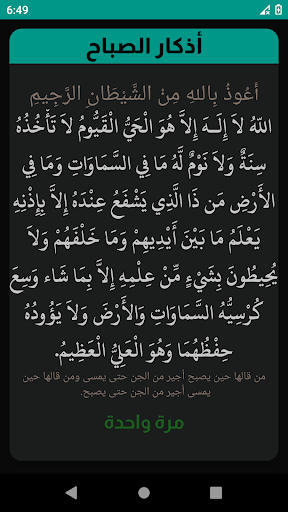 6:49
أذكار الصباح
أَعُوذُ بِاللهِ مِنْ الشَّيْطَانِ الرَّجِيمِ
اللّهُ لاَ إِلَـهَ إِلاَّ هُوَ الْحَيُّ الْقَيُّومُ لاَ تَأْخُذُهُ
سِنَةٌ وَلاَ نَوْمٌ لَّهُ مَا فِي السَّمَاوَاتِ وَمَا فِي
الأَرْضِ مَن ذَا الَّذِي يَشْفَعُ عِنْدَهُ إِلاَّ بِإِذْنِهِ
يَعْلَمُ مَا بَيْنَ أَيْدِيهِمْ وَمَا خَلْفَهُمْ وَلاَ
يُحِيطُونَ بِشَيْءٍ مِّنْ عِلْمِهِ إِلاَّ بِمَا شَاء وَسِعَ
كُرْسِيُّهُ السَّمَاوَاتِ وَالأَرْضَ وَلاَ يَؤُودُهُ
حِفْظُهُمَا وَهُوَ الْعَلِيُّ الْعَظِيمُ.
من قالها حين يصبح أجير من الجن حتى يمسى ومن قالها حين
يمسى أجير من الجن حتى يصبح.
مرة واحدة